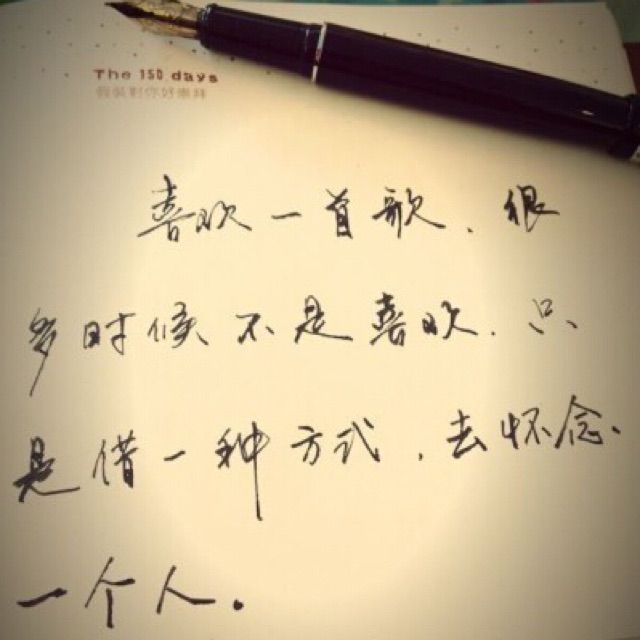 The 150 days
假裝對你好崇拜
喜欢一首歌、很
多时候不是喜欢.只
是借一种方式,去怀念.
一个人.